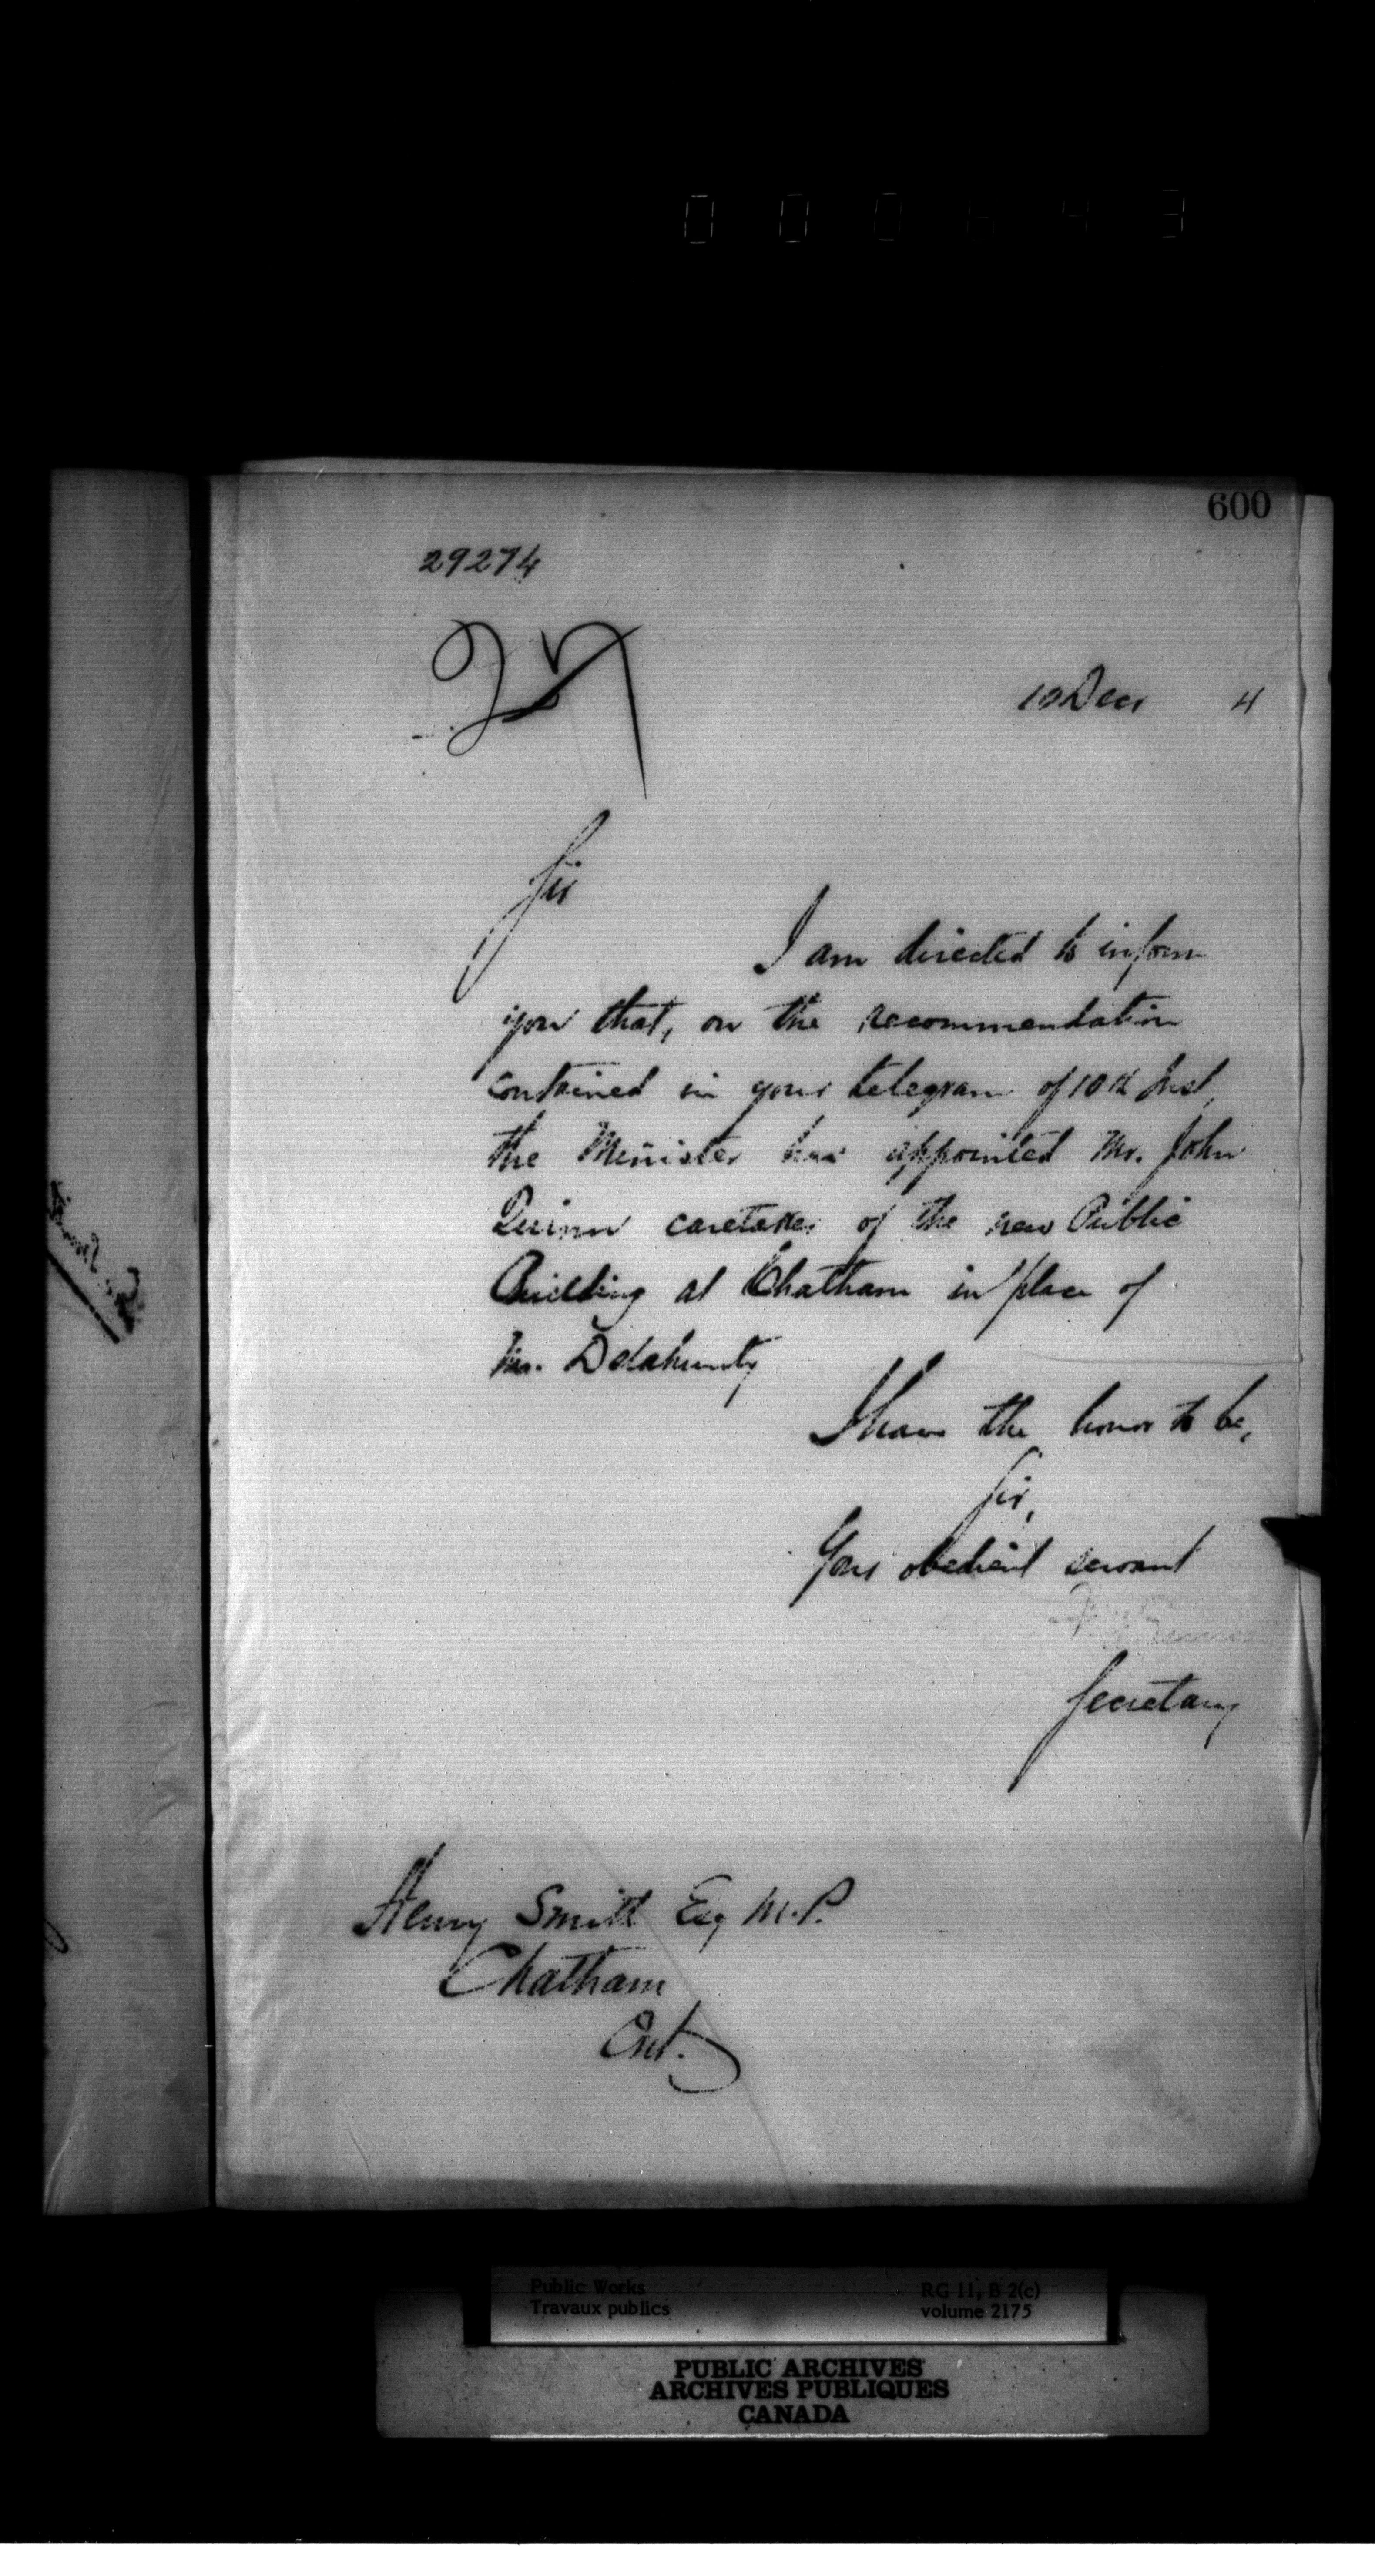 600
29274
10 Decr 4
Sir
I am directed to inform
you that, on the recommendation
contained in your telegram of 10th Inst,
the Minister has appointed Mr. John
Quinn caretaker of the new Public
Building at Chatham in place of
Mr. Delahunty
I have the honor to be,
Sir,
Your obedient servant
Secretary
Henry Smith Esq M.P.
Chatham
Ont.
Public Works RG 11, B 2(c)
Travaux publics volume 2175
PUBLIC ARCHIVES
ARCHIVES PUBLIQUES
CANADA